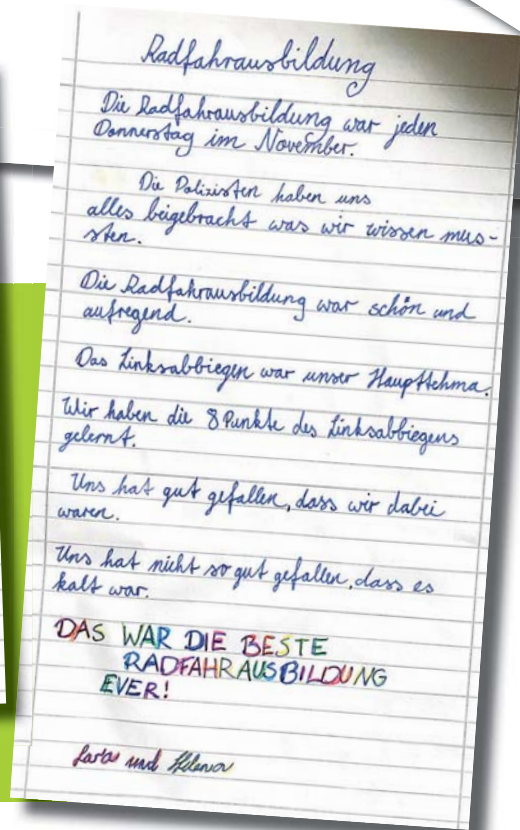 Radfahrausbildung
Die Radfahrausbildung war jeden
Donnerstag im November.
Die Polizisten haben uns
alles beigebracht was wir wissen mus-
sten.
Die Radfahrausbildung war schön und
aufregend.
Das Linksabbiegen war unser Haupttehma.
Wir haben die 8 Punkte des Linksabbiegens
gelernt.
Uns hat gut gefallen, dass wir dabei
waren.
Uns hat nicht so gut gefallen, dass es
kalt war.
DAS WAR DIE BESTE
RADFAHRAUSBILDUNG
EVER!
Lara und Helena